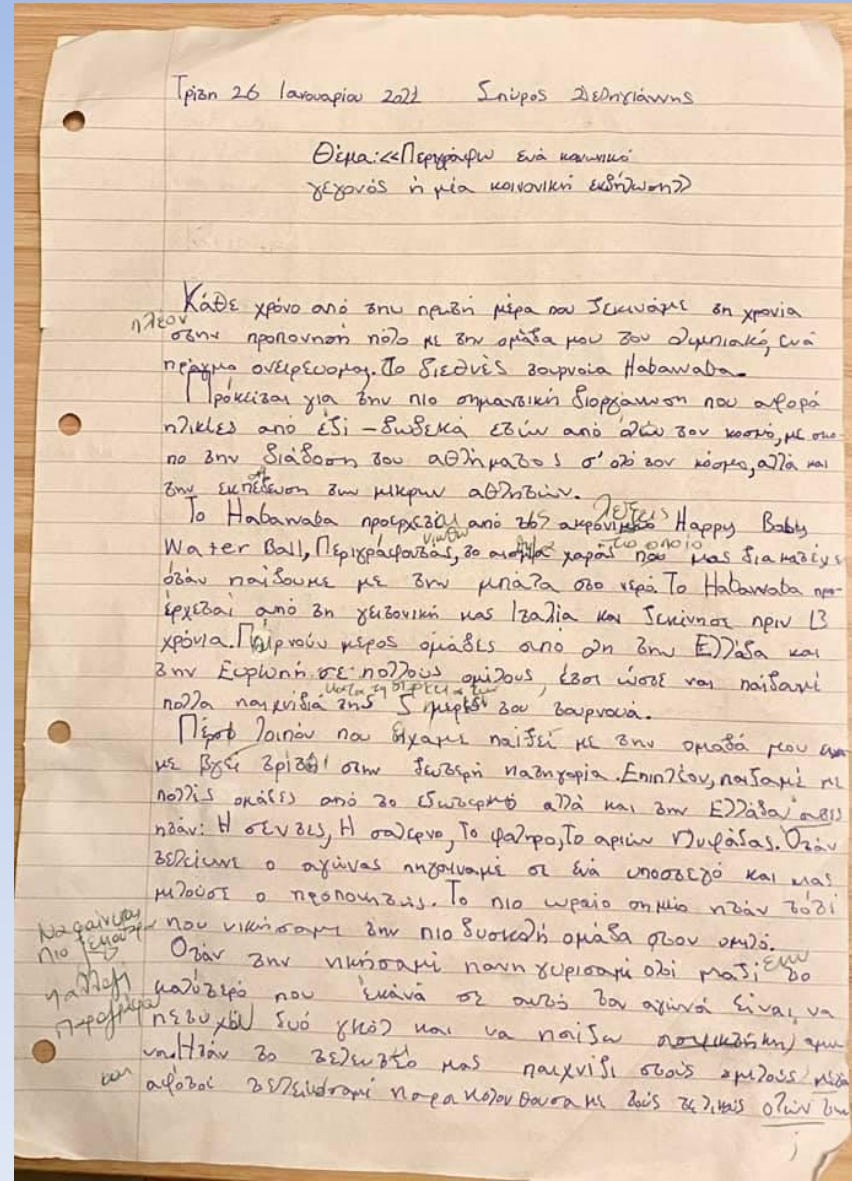 Τρίτη 26 Ιανουαρίου 2021 Σπύρος Δεδηγιάννης
Θέμα: <<Περιγράφω ενά κοινωνικό
γεγονός ή μία κοινονική εκδήλωση>>
Κάθε χρόνο από την πρώτή μέρα που ξεκινάμε τη χρονιά
πλέον
στην προπονηση πόλο με την ομάδα μου τον Ολυμπιακό, ενά
πράγμα ονειρευομαι. Το διεθνές τουρνοία Habawaba.
Πρόκειται για την πιο σημαντική διοργάνωση που αφορά
ηλικίες από έξι - δωδεκά ετών από όλών τον κοσμό, με σκο-
πο την διάδοση του αθλήματος σ' όλό τον κόσμο, αλλά και
την εκπέδευση των μικρων αθλητών.
λέξεις
Το Habawaba προερχεται από τις Happy Baby
Water Ball, Περιγράφοντας, το χαράς που μας διακατέχει
νιώθω το οποίο
οτάν παίζουμε με την μπάλα στο νερό. Το Habawaba προ-
έρχεται από τη γειτονική μας Ιταλία και ξεκίνησε πριν 13
χρόνια. Παίρνουν μερος ομάδες από όλη την Ελλάδα και
την Ευρώπη σε πολλούς ομίλους, έτσι ώστε ναι παίζαμέ
κατά τη διάρκεια των
πολλα παιχνίδιά της 5 ημερών του τουρνουά.
Πέρσι λοιπόν που είχαμε παίξει με την ομάδά μου
με βγεί τρίτοί στην δεύτερη κατηγορία. Επιπλέον, παίζαμέ με
πολλές ομάδες από το εξωτερικό αλλά και την Ελλάδα
ηταν: Η σεντες, Η σαλερνο, Το φαληρο, Το αριών Γλυφάδας. Οτάν
τελείωνε ο αγώνας πηγαιναμέ σε ενά υποστεγό και μας
μιλούσε ο προπονητής. Το πιο ωραίο σημίο ηταν τότέ
που νικήσαμε την πιο δυσκολή ομάδα στον ομιλό.
Να φαίνεται
πιο ξεκάθαρα
η αλλαγή
παραγράφου
Οτάν την νικήσαμέ πανηγυρισαμέ ολοί μαζί εγω το
καλύτερό που έκανά σε αυτό τον αγώνά είναι να
πετυχω δυό γκόλ και να παίξω αμυ-
να. Ηταν το τελευταίο μας παιχνίδι στούς ομιλούς μετά
και
αφότοί τελειώσαμέ παρακολουθουσαμε τούς τελικούς οτών την
;